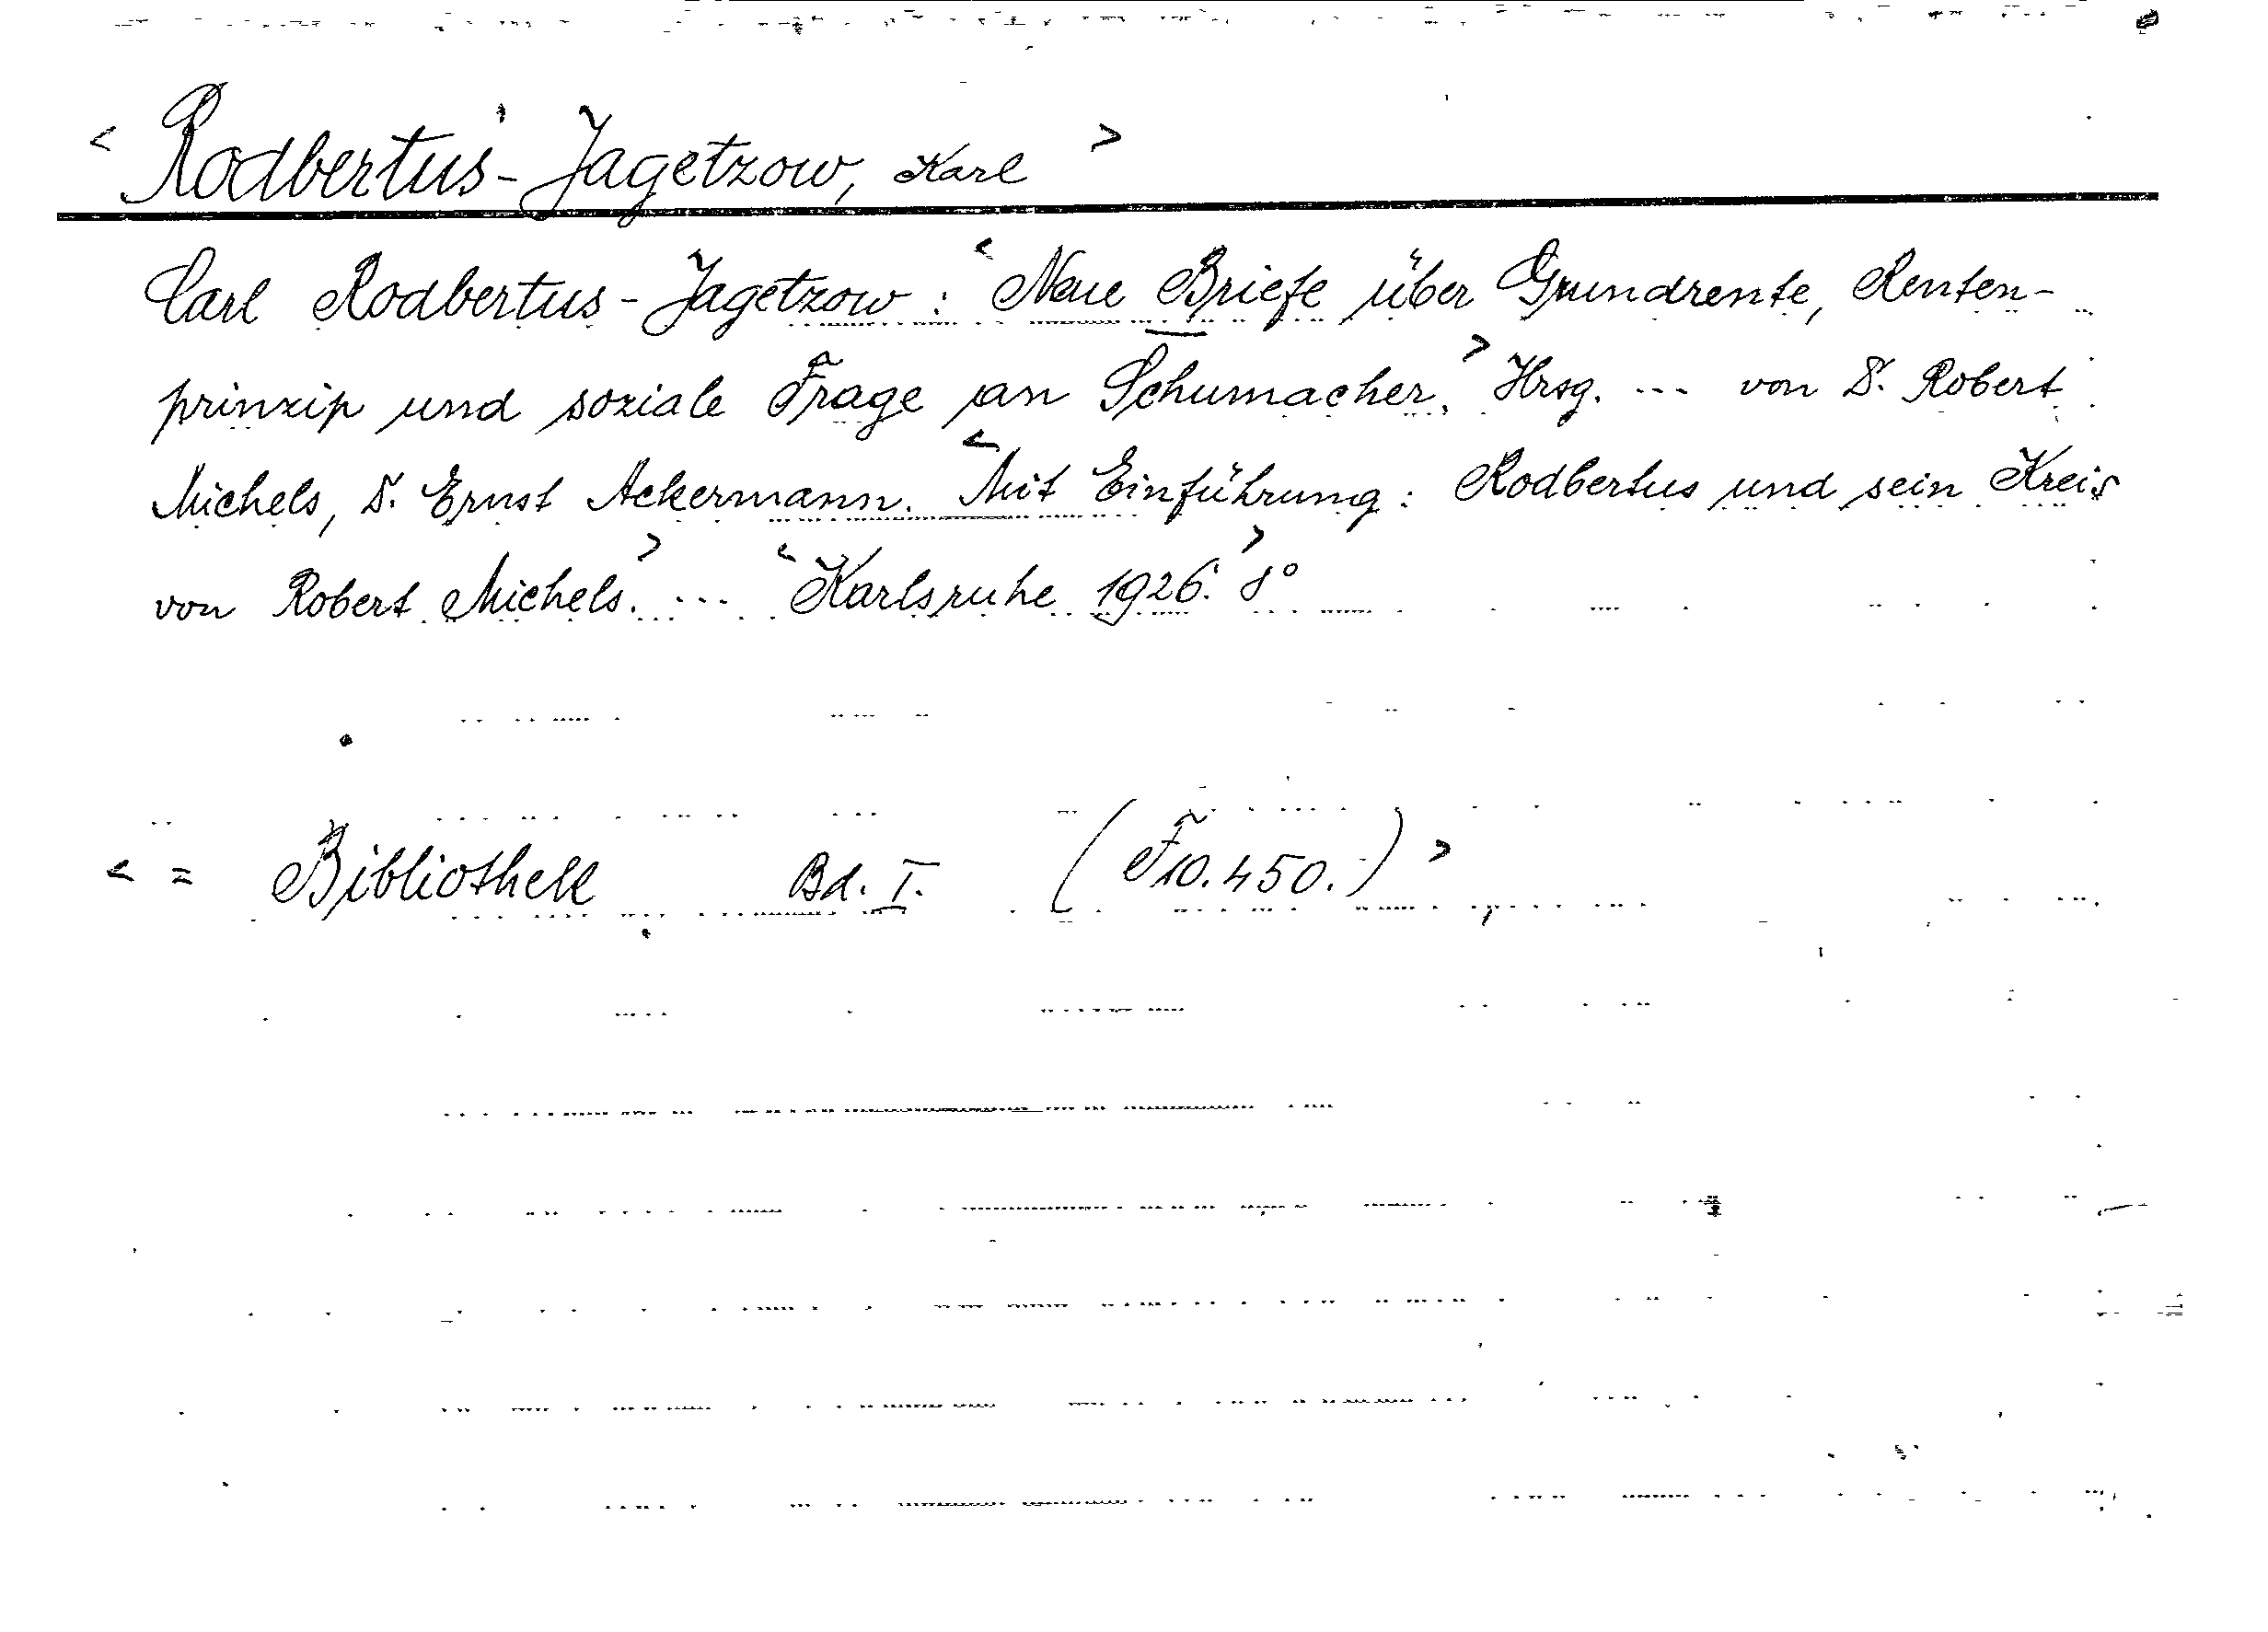 < Rodbertus-Jagetzow, Karl >
Carl Rodbertus-Jagetzow: < Neue Briefe über Grundrente, Renten-
prinzip und soziale Frage an Schumacher. > Hrsg. ... von D. Robert
Michels, D. Ernst Ackermann. < Mit Einführung: Rodbertus und sein Kreis
von Robert Michels. > ... < Karlsruhe 1926. > 8°
< = Bibliothek Bd. I. (F10.450.) >